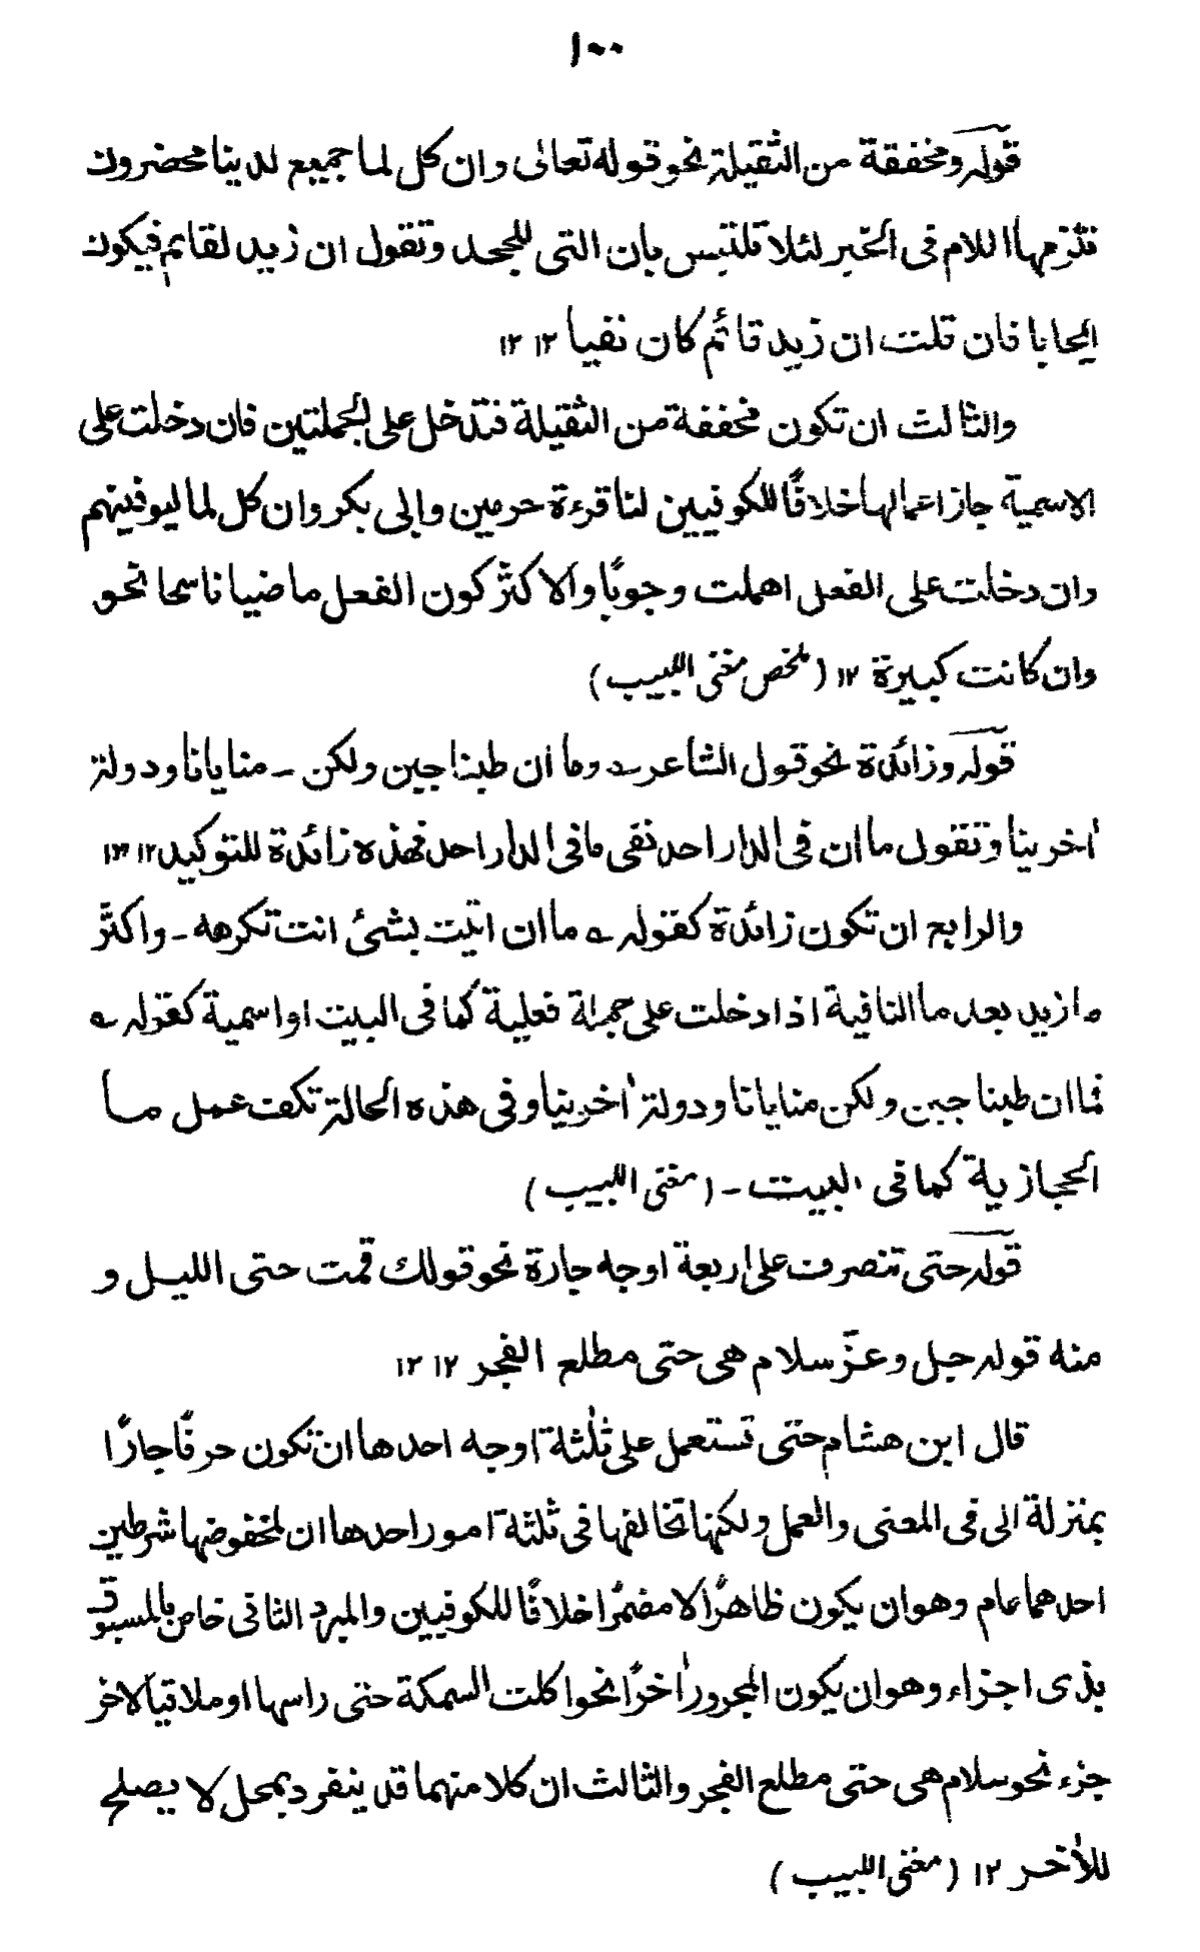 ١٠٠
قوله ومخففة من الثقيلة نحو قوله تعالى وان كل لما جميع لدينا محضرون
تلزمها اللام فى الخبر لئلا تلتبس بان التى للجحد وتقول ان زيد لقايم فيكون
ايجابا فان قلت ان زيد قائم كان نفيا ١٢ ١٢
والثالث ان تكون مخففة من الثقيلة فتدخل على الجملتين فان دخلت على
الاسمية جاز اعمالها خلافًا للكوفيين لنا قرءة حرمين وابى بكر وان كل لما ليوفينهم
وان دخلت على الفعل اهملت وجوبًا والاكثر كون الفعل ماضيا ناسخا نحو
وان كانت كبيرة ١٢ (ملخص مغنى اللبيب)
قوله وزائدة نحو قول الشاعر ؎ وما ان طبنا جبن ولكن ـ منايانا ودولة
اٰخرينا وتقول ما ان فى الدار احد نفى ما فى الدار احد فهذه زائدة للتوكيد ١٢ ١٣
والرابع ان تكون زائدة كقوله ؎ ما ان اتيت بشئ انت تكرهه ـ واكثر
ما زيد بعد ما النافية اذا دخلت على جملة فعلية كما فى البيت او اسمية كقوله ؎
فما ان طبنا جبن ولكن منايانا ودولة اٰخرينا وفى هذه الحالة تكف عمل ما
الحجازية كما فى البيت ـ (مغنى اللبيب)
قوله حتى تنصرف على اربعة اوجه جارة نحو قولك قمت حتى الليل و
منه قوله جل وعزّ سلام هى حتى مطلع الفجر ١٢ ١٢
قال ابن هشام حتى تستعمل على ثلٰثة اوجه احدها ان تكون حرفًا جارًا
بمنزلة الى فى المعنى والعمل ولكنها تخالفها فى ثلثة امور احدها ان لمخفوضها شرطين
احدهما عام وهو ان يكون ظاهرًا لا مضمرًا خلافًا للكوفيين والمبرد الثانى خاص بالمسبوق
بذى اجزاء وهو ان يكون المجرور اٰخرًا نحوا كلت السمكة حتى راسها او ملاقيا لاٰخر
جزء نحو سلام هى حتى مطلع الفجر والثالث ان كلا منهما قد ينفرد بمحل لا يصلح
للاٰخر ١٢ (مغنى اللبيب)